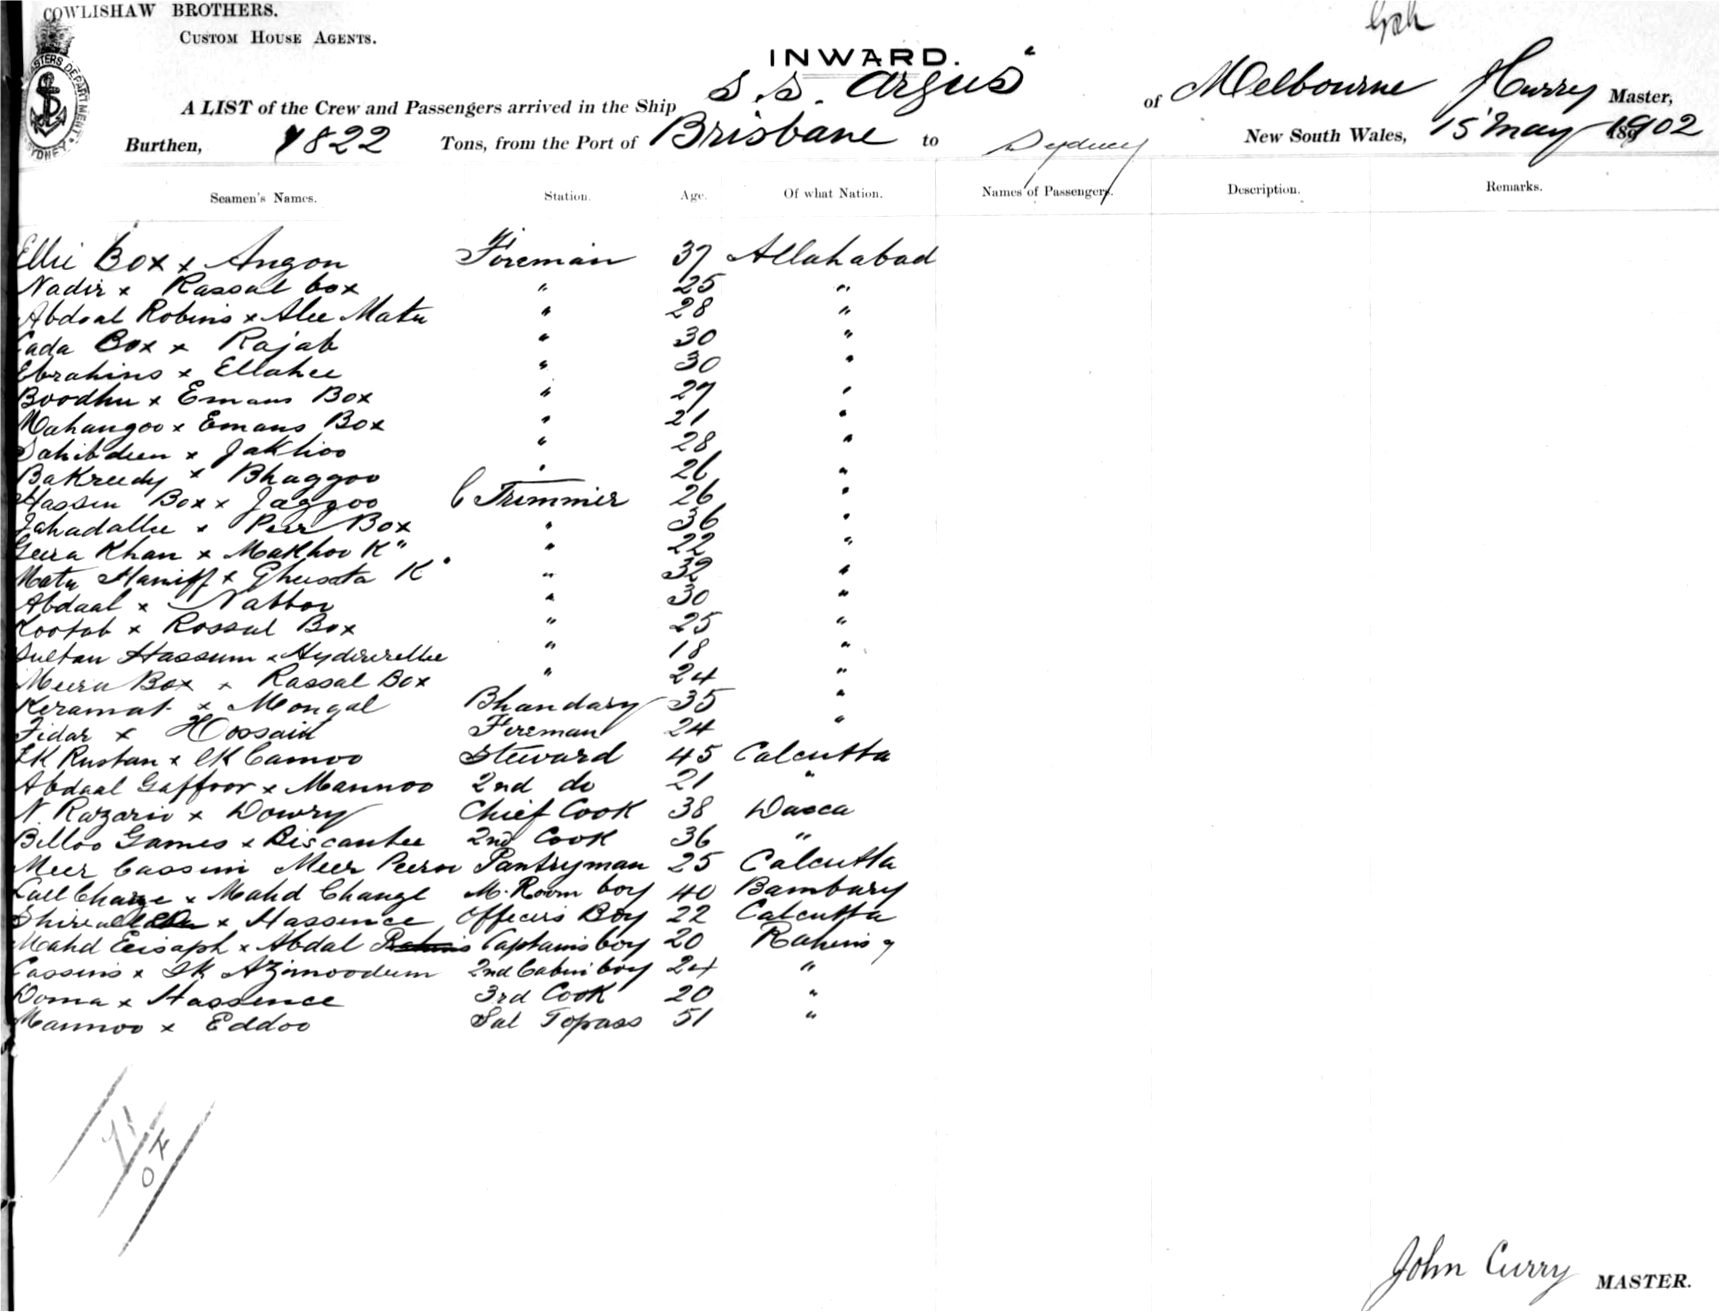 COWLISHAW BROTHERS.
CUSTOM HOUSE AGENTS.
INWARD.
A LIST of the Crew and Passengers arrived in the Ship S.S. "Argus" of Melbourne J Curry Master,
Burthen, 1822 Tons, from the Port of Brisbane to Sydney New South Wales, 15 May 1902
Seamen's Names. Station. Age. Of what Nation. Names of Passengers. Description. Remarks.
Ellie Box x Angon Fireman 37 Allahabad
Nadir x Rassal box " 25 "
Abdoal Robins x Alee Matu " 28 "
Cada Box x Rajab " 30 "
Ebrahins x Ellahee " 30 "
Boodhu x Emans Box " 27 "
Mahangoo x Emans Box " 21 "
Sahibdeen x Jakhoo " 28 "
Bakreedy x Bhaggoo " 26 "
Hassen Box x Jaggoo C Trimmer 26 "
Jahadallee x Peer Box " 36 "
Geera Khan x Makhoo K" " 22 "
Matu Haniff x Gheesata K" " 32 "
Abdaal x Nabbou " 30 "
Kootab x Rossal Box " 25 "
Sultan Hassum x Hydererellee " 18 "
Meera Box x Rassal Box " 24 "
Keramat x Mongal Bhandary 35 "
Fidar x Hossain Fireman 24 "
SK Rustan x SK Camoo Steward 45 Calcutta
Abdaal Gaffoor x Mannoo 2nd do 21 "
N. Razario x Dowry Chief Cook 38 Dacca
Billoo Games x Discantee 2nd Cook 36 "
Meer Cassim Meer Peeroo Pantryman 25 Calcutta
Lall Change x Mahd Change M. Room boy 40 Bambury
x Hassence Officers Boy 22 Calcutta
Mahd Eeisaph x Abdal Captains boy 20 Rahins
Cassins x SK Azimoodeen 2nd Cabin boy 24 "
Doma x Hassence 3rd Cook 20 "
Mannoo x Eddoo Sal Topass 51 "
71
OK
John Curry MASTER.